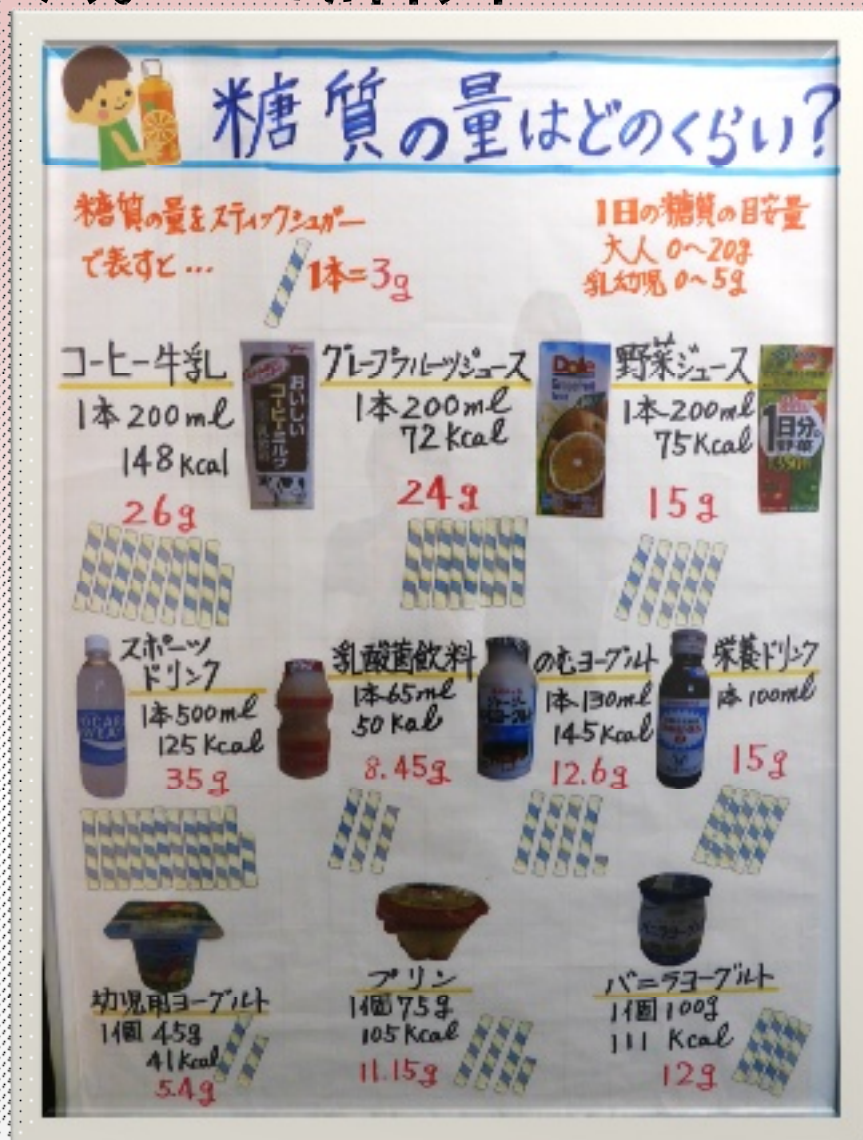 糖質の量はどのくらい?
糖質の量をスティックシュガー
で表すと…
1本=3g
1日の糖質の目安量
大人 0～20g
乳幼児 0～5g
コーヒー牛乳
1本200ml
148Kcal
26g
おいしい
コーヒーミルク
グレープフルーツジュース
1本200ml
72Kcal
24g
Dole
野菜ジュース
1本200ml
75Kcal
15g
1日分の
野菜
スポーツ
ドリンク
1本500ml
125Kcal
35g
POCARI
SWEAT
乳酸菌飲料
1本65ml
50Kal
8.45g
のむヨーグルト
1本130ml
145Kcal
12.6g
栄養ドリンク
1本100ml
15g
幼児用ヨーグルト
1個45g
41Kcal
5.4g
プリン
1個75g
105Kcal
11.15g
バニラヨーグルト
1個100g
111 Kcal
12g